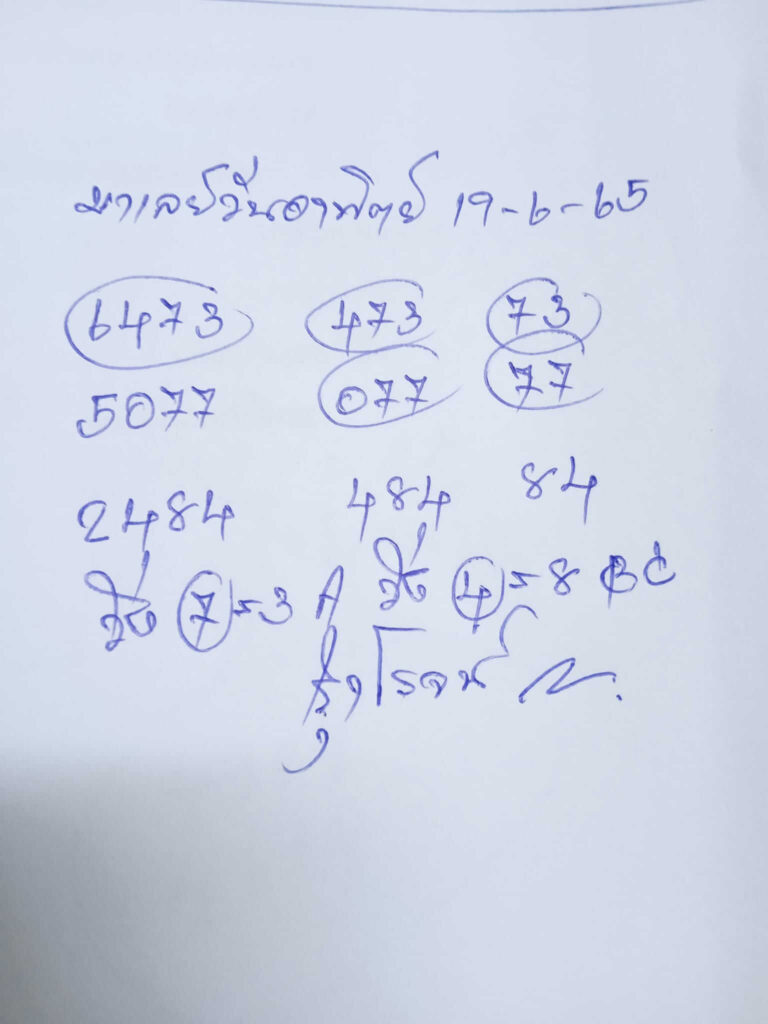 มาเลย์วันอาทิตย์ 19-6-65
6473 473 73
5077 077 77
2484 484 84
วิ่ง 7=3 A วิ่ง 4=8 BC
โรจน์